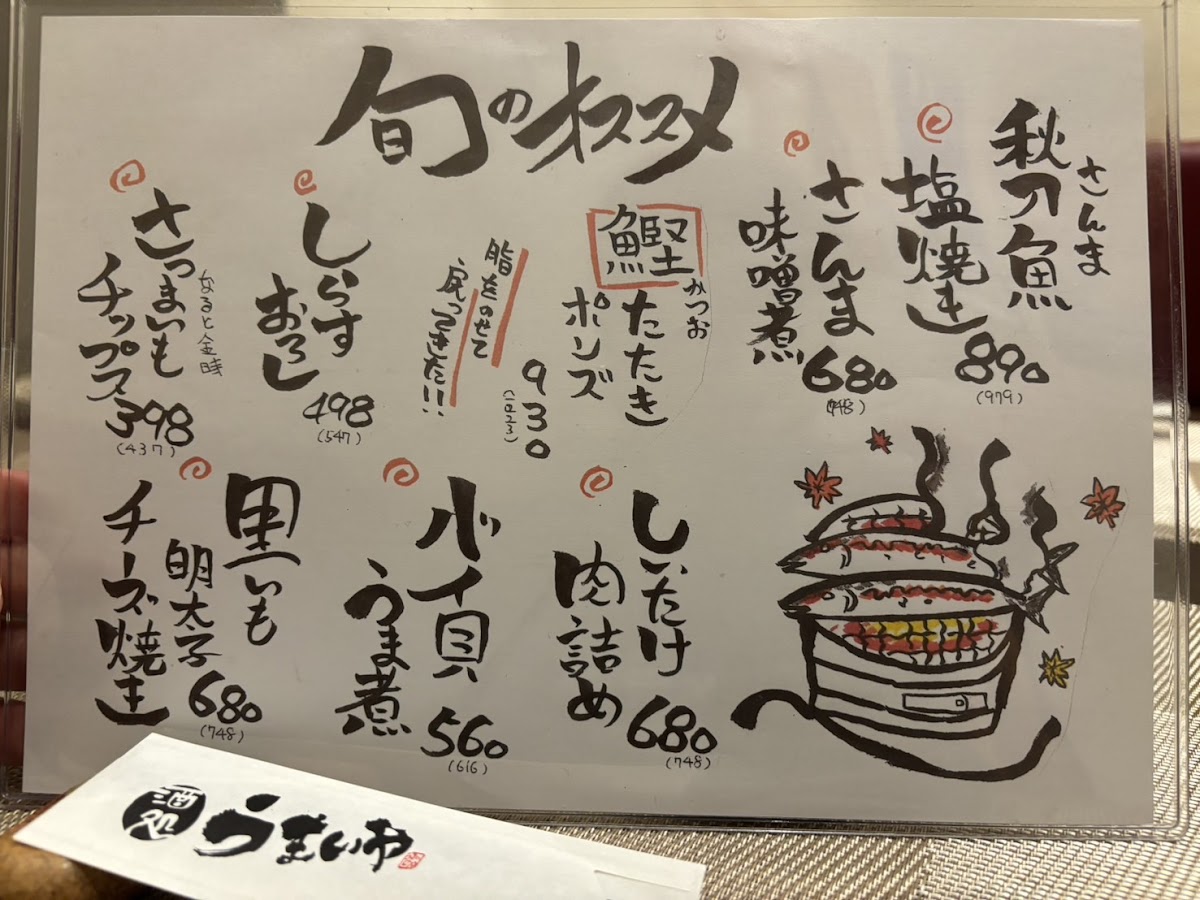 旬のオススメ
秋刀魚
さんま
塩焼き
890
(979)
さんま
味噌煮
680
(748)
鰹
かつお
たたき
ポンズ
930
(一〇二三)
脂をのせて
戻ってきた!!
しらす
おろし
498
(547)
さつまいも
なると金時
チップス
398
(437)
しいたけ
肉詰め
680
(748)
バイ貝
うま煮
560
(616)
黒いも
明太子
チーズ焼き
680
(748)
酒処
うまいや